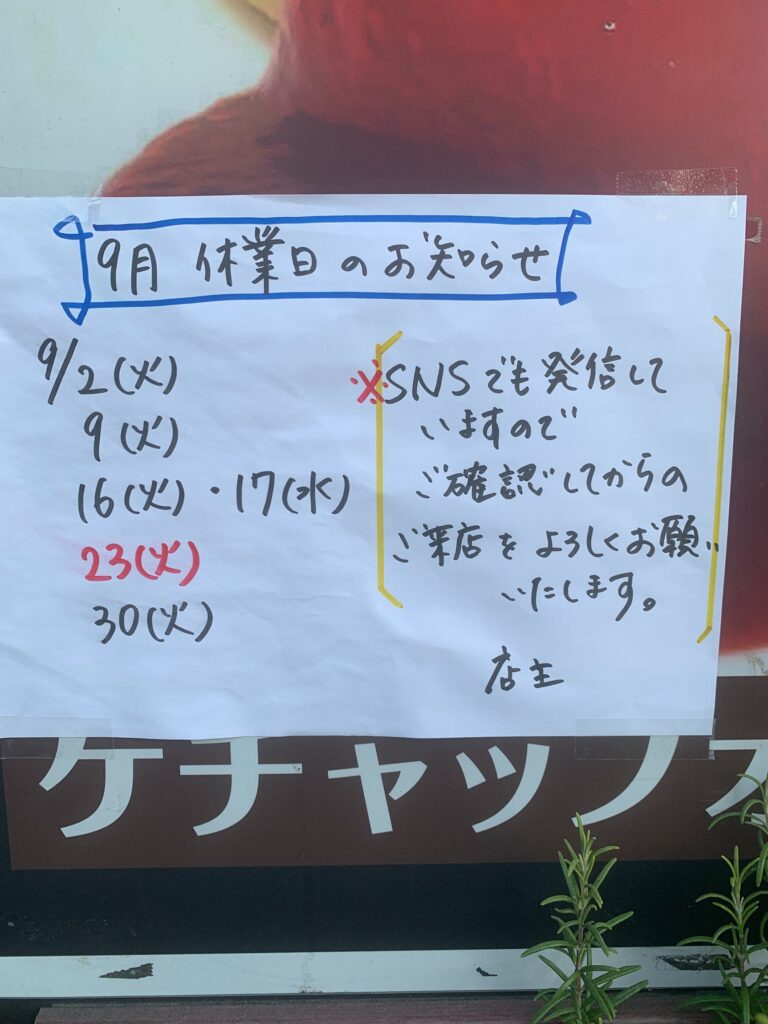 9月 休業日のお知らせ
9/2(火)
9(火)
16(火)・17(水)
23(火)
30(火)
※SNSでも発信して
いますので
ご確認してからの
ご来店をよろしくお願い
いたします。
店主
ケチャップオ